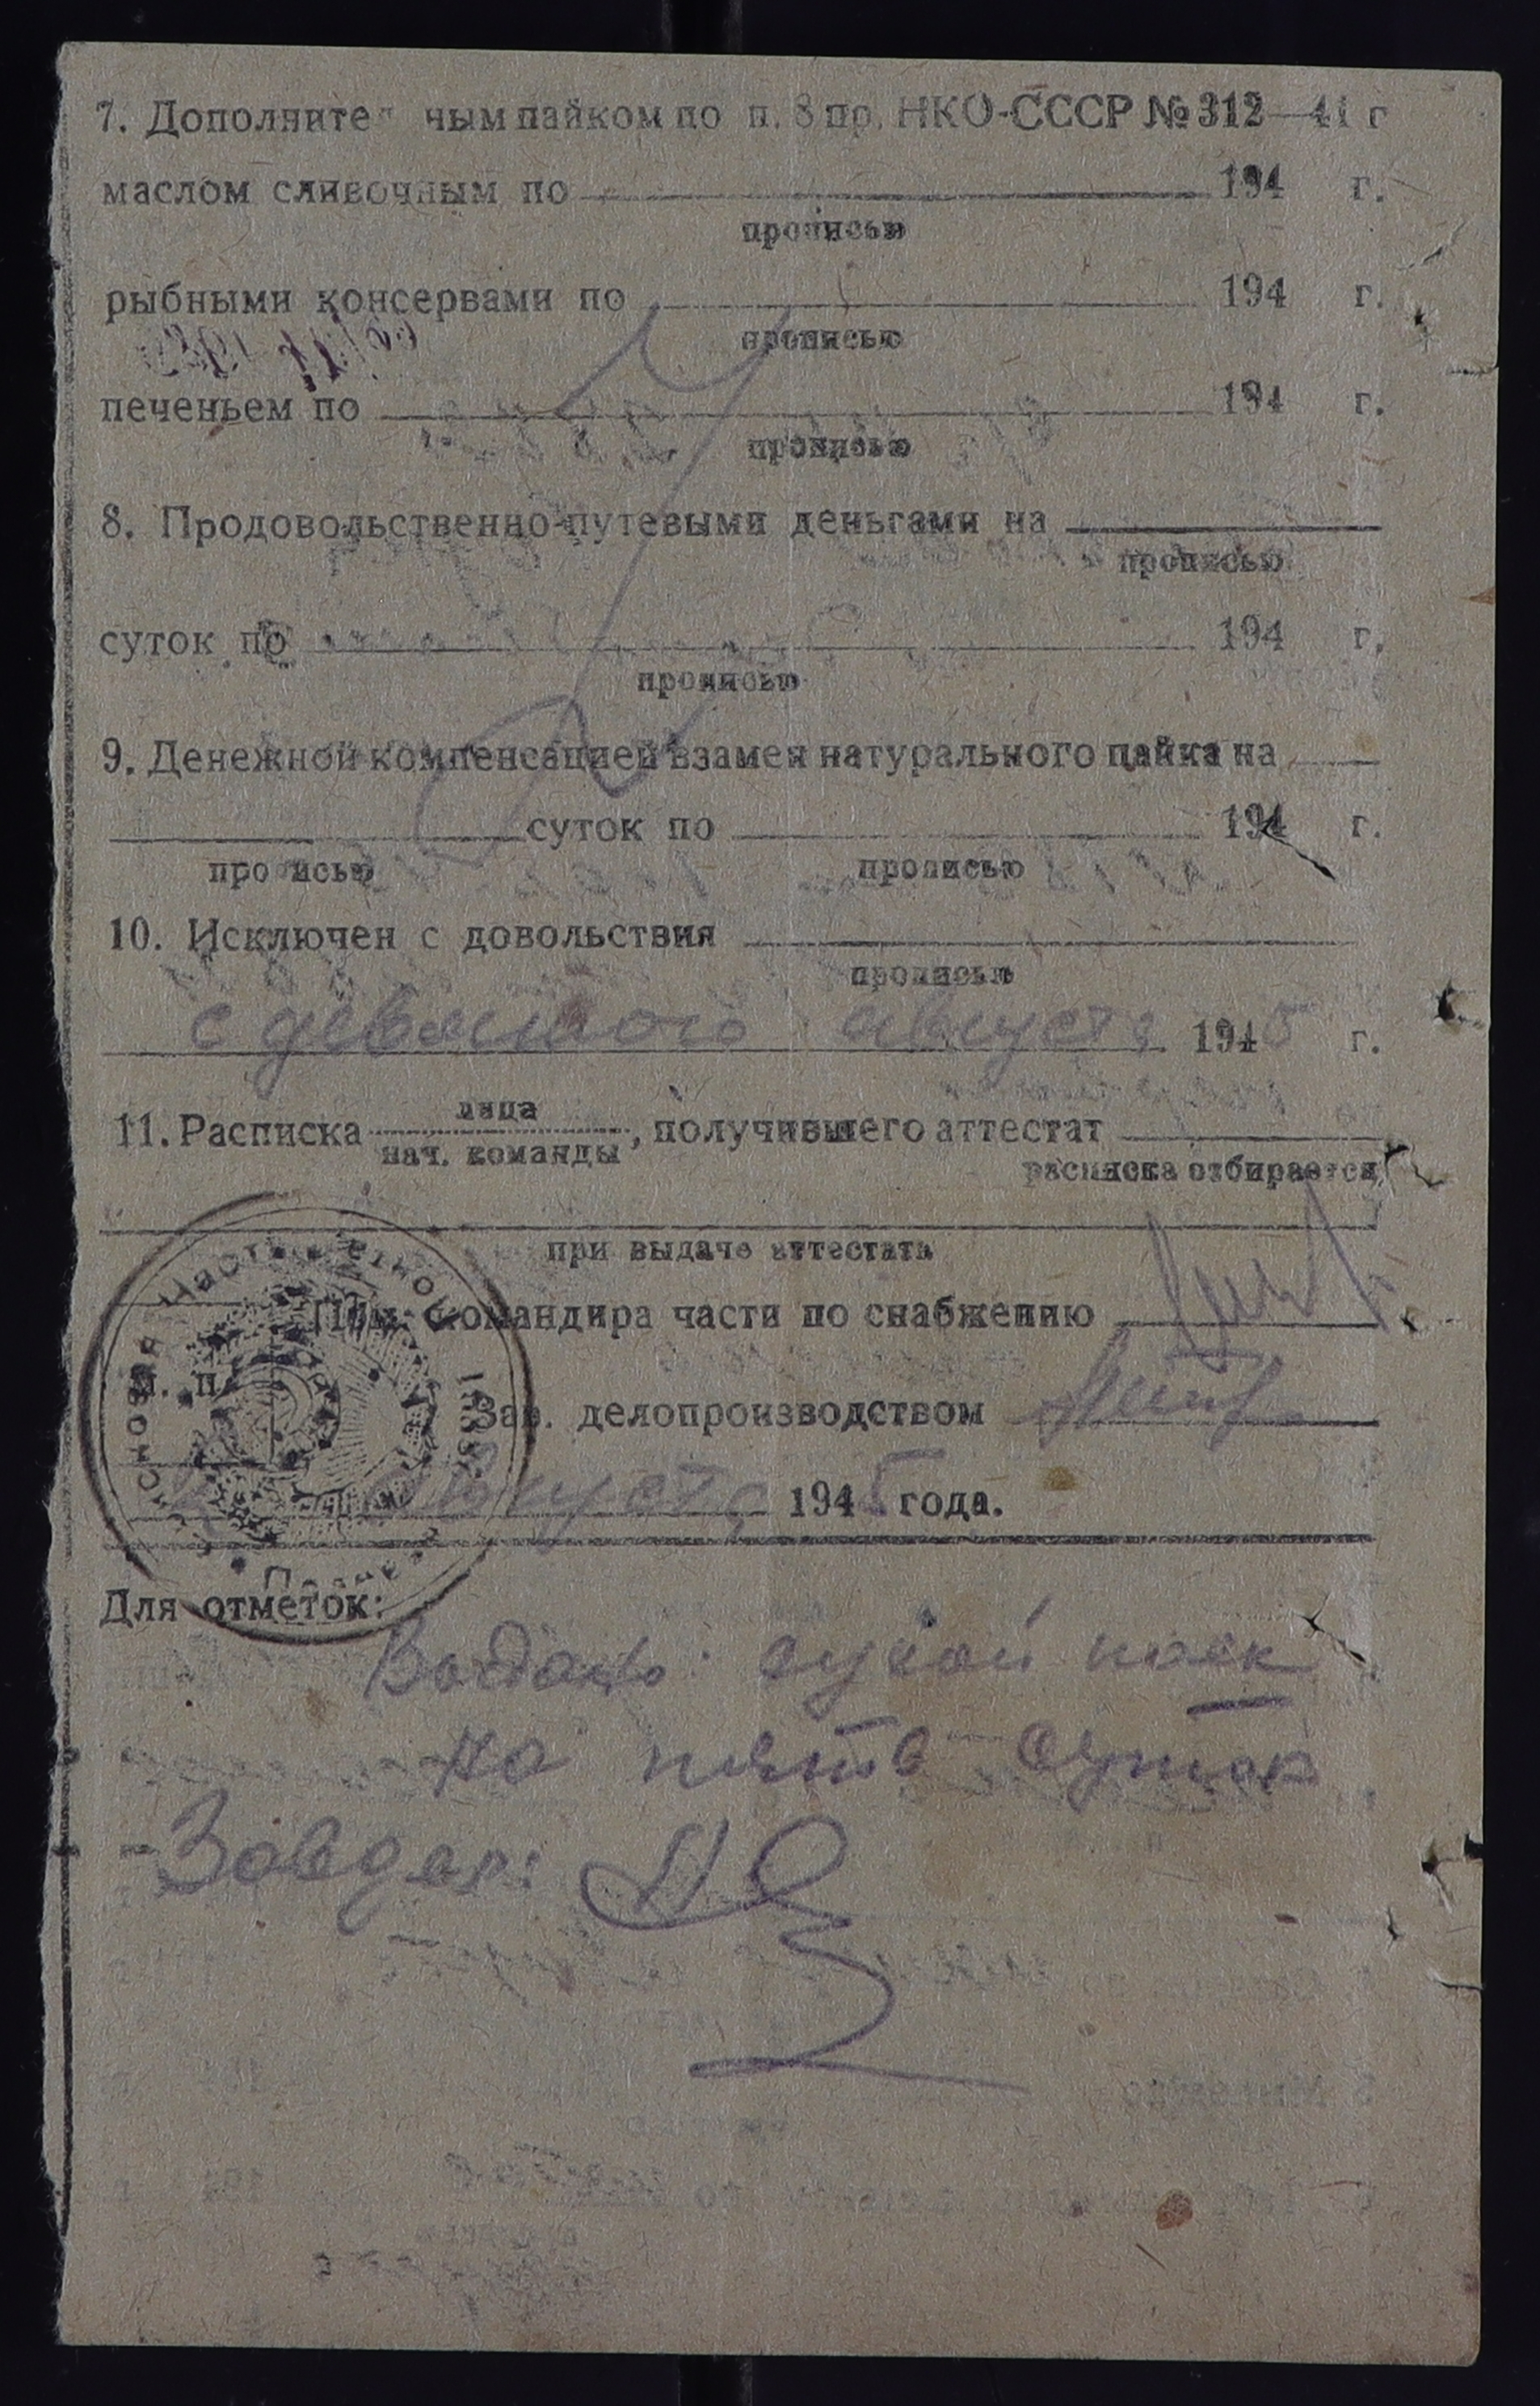 7. Дополните чым пайком по п. 8 пр. НКО-СССР № 312—41 г
маслом сливочным по 194 г.
прописью
рыбными консервами по 194 г.
прописью
печеньем по 194 г.
прописью
8. Продовольственно-путевыми деньгами на
прописью
суток по 194 г.
прописью
9. Денежной компенсацией взамен натурального пайка на
суток по 194 г.
прописью прописью
10. Исключен с довольствия
прописью
с девятого августа 1945 г.
11. Расписка лица
нач. команды, получившего аттестат
расписка отбирается
при выдаче аттестата
Пом. командира части по снабжению
м. п.
Зав. делопроизводством
августа 1945 года.
Для отметок:
Выдано сухой паек
на пять суток
Завдел: